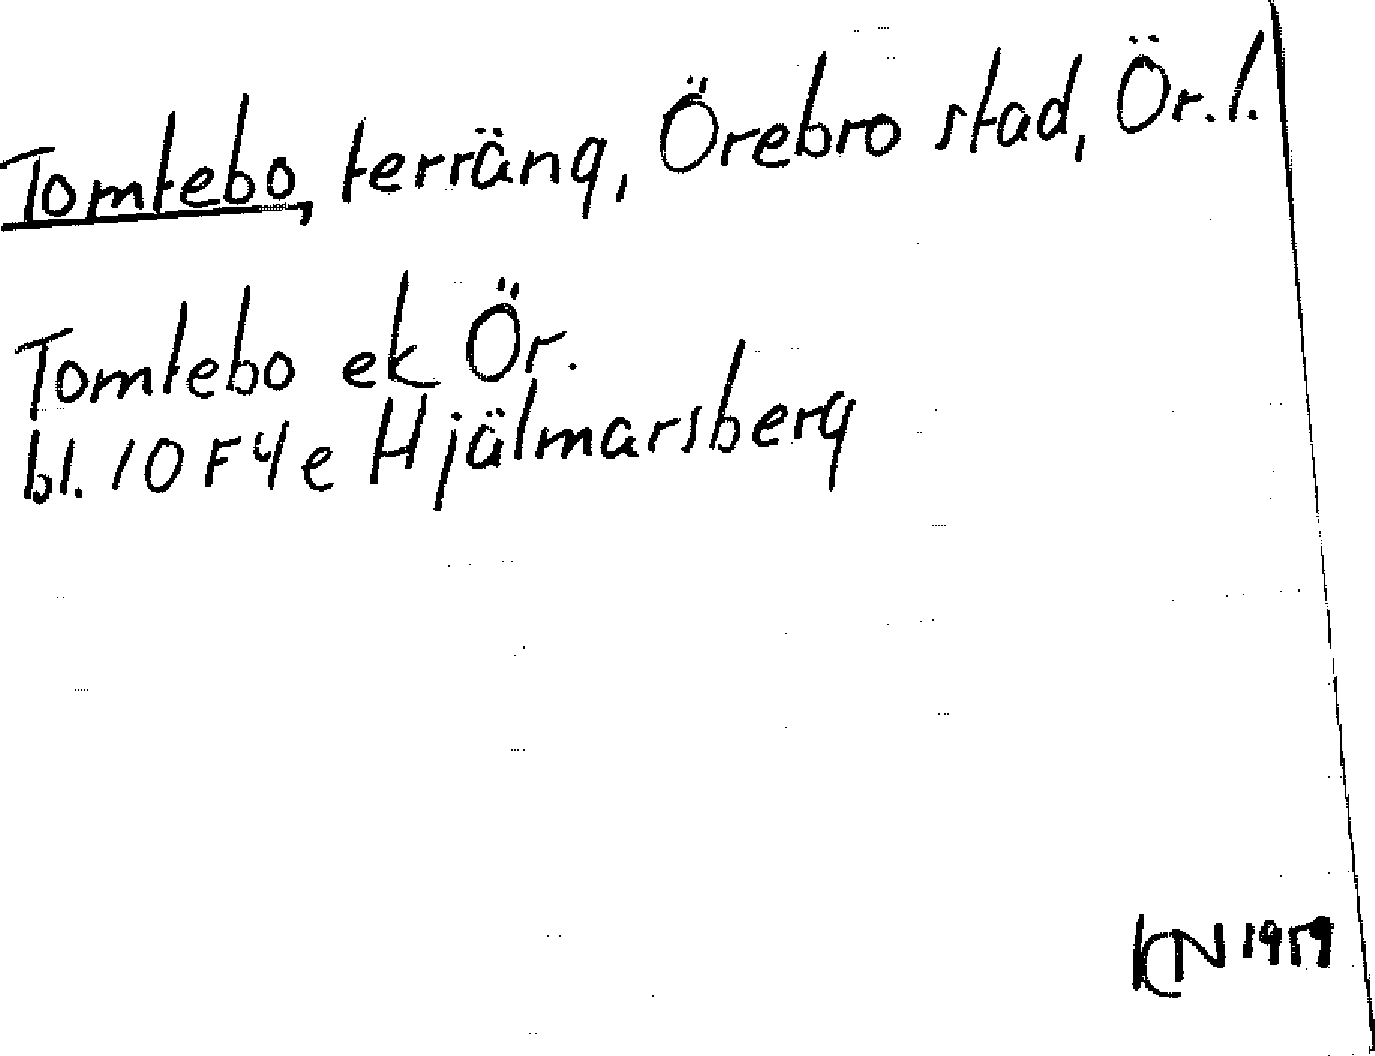 Tomtebo, terräng, Örebro stad, Ör. l.
Tomtebo ek Ör.
bl. 10 F 4 e Hjälmarsberg
KN